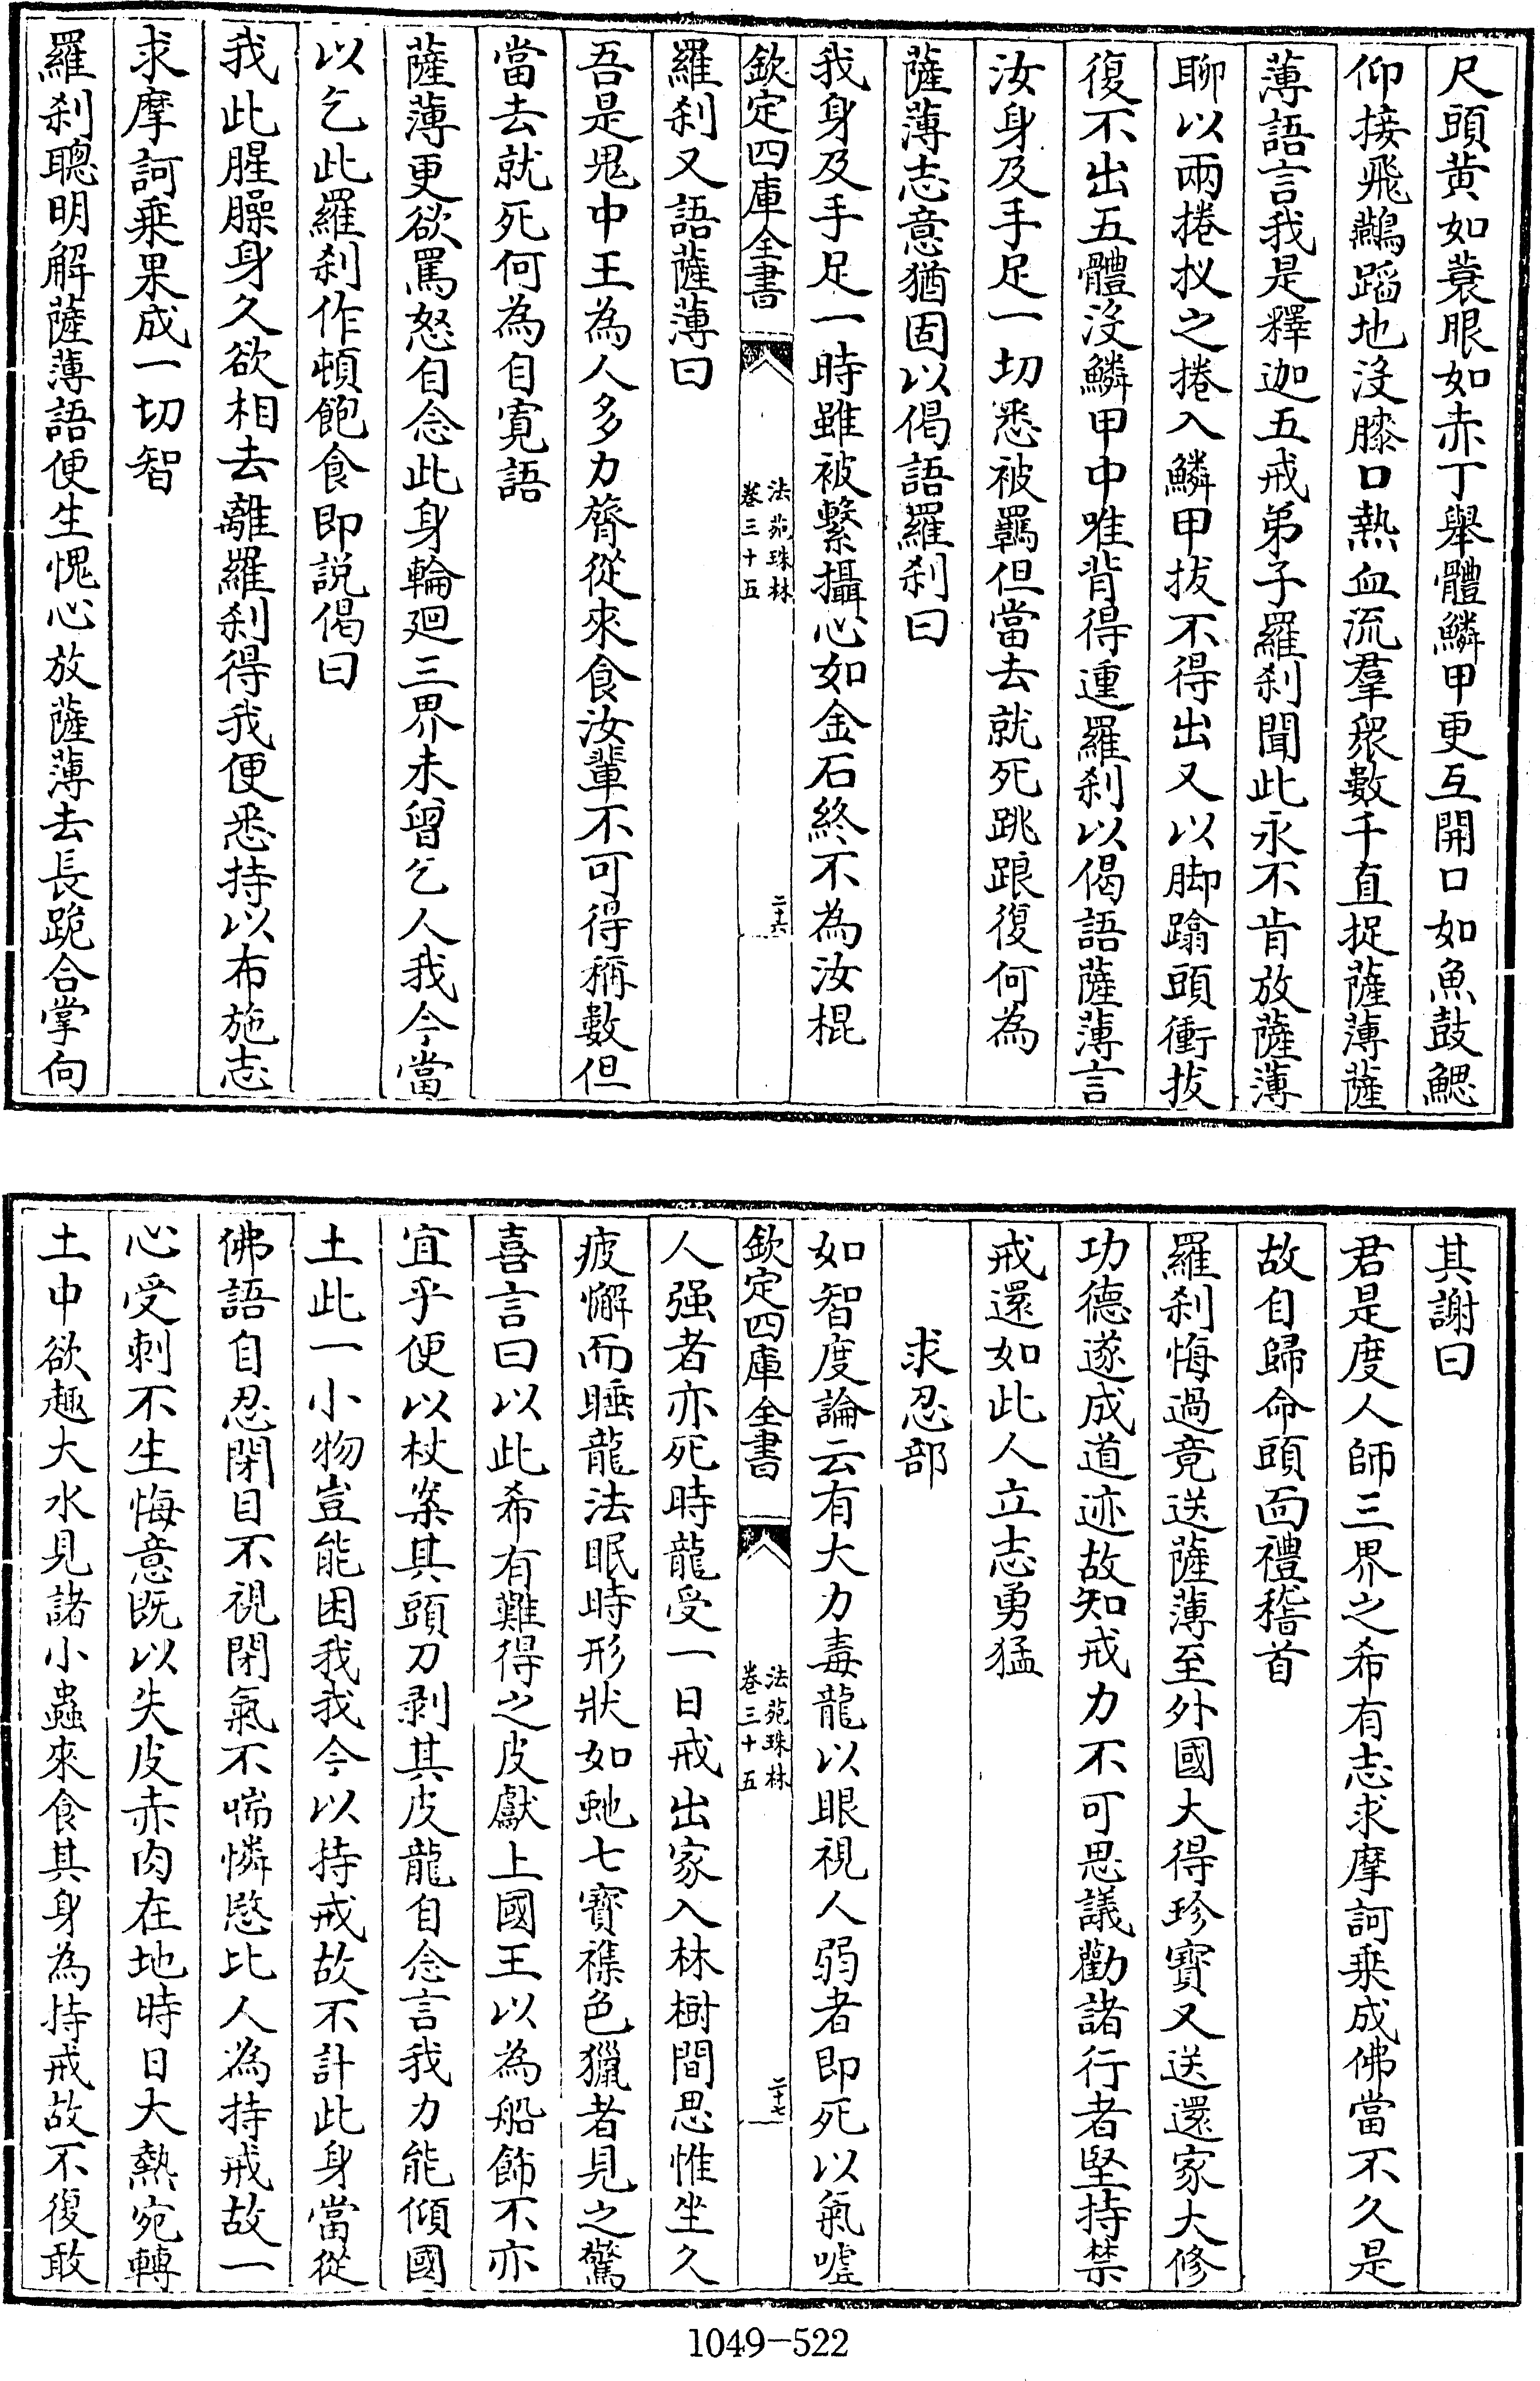 尺頭黄如蓑眼如赤丁舉體鱗甲更互開口如魚鼓鰓
仰接飛鷰蹈地沒膝口熱血流羣衆數千直捉薩薄薩
薄語言我是釋迦五戒弟子羅刹聞此永不肯放薩薄
聊以兩捲扠之捲入鱗甲拔不得出又以脚蹹頭衝拔
復不出五體沒鱗甲中唯背得運羅刹以偈語薩薄言
汝身及手足一切悉被羈但當去就死跳踉復何為
薩薄志意猶固以偈語羅刹曰
我身及手足一時雖被繫攝心如金石終不為汝棍
欽定四庫全書
法苑珠林
卷三十五
二十六
羅刹又語薩薄曰
吾是鬼中王為人多力膂從來食汝輩不可得稱數但
當去就死何為自寛語
薩薄更欲罵怒自念此身輪廻三界未曾乞人我今當
以乞此羅刹作頓飽食即説偈曰
我此腥臊身久欲相去離羅刹得我便悉持以布施志
求摩訶乗果成一切智
羅刹聰明解薩薄語便生愧心放薩薄去長跪合掌向
其謝曰
君是度人師三界之希有志求摩訶乗成佛當不久是
故自歸命頭面禮稽首
羅刹悔過竟送薩薄至外國大得珍寶又送還家大修
功德遂成道迹故知戒力不可思議勸諸行者堅持禁
戒還如此人立志勇猛
求忍部
如智度論云有大力毒龍以眼視人弱者即死以氣噓
欽定四庫全書
法苑珠林
卷三十五
二十七
人强者亦死時龍受一日戒出家入林樹間思惟坐久
疲懈而睡龍法眠時形狀如虵七寳襍色獵者見之驚
喜言曰以此希有難得之皮獻上國王以為船飾不亦
宜乎便以杖案其頭刀剥其皮龍自念言我力能傾國
土此一小物豈能困我我今以持戒故不計此身當從
佛語自忍閉目不視閉氣不喘憐愍比人為持戒故一
心受刺不生悔意既以失皮赤肉在地時日大熱宛轉
土中欲趣大水見諸小蟲來食其身為持戒故不復敢
1049-522